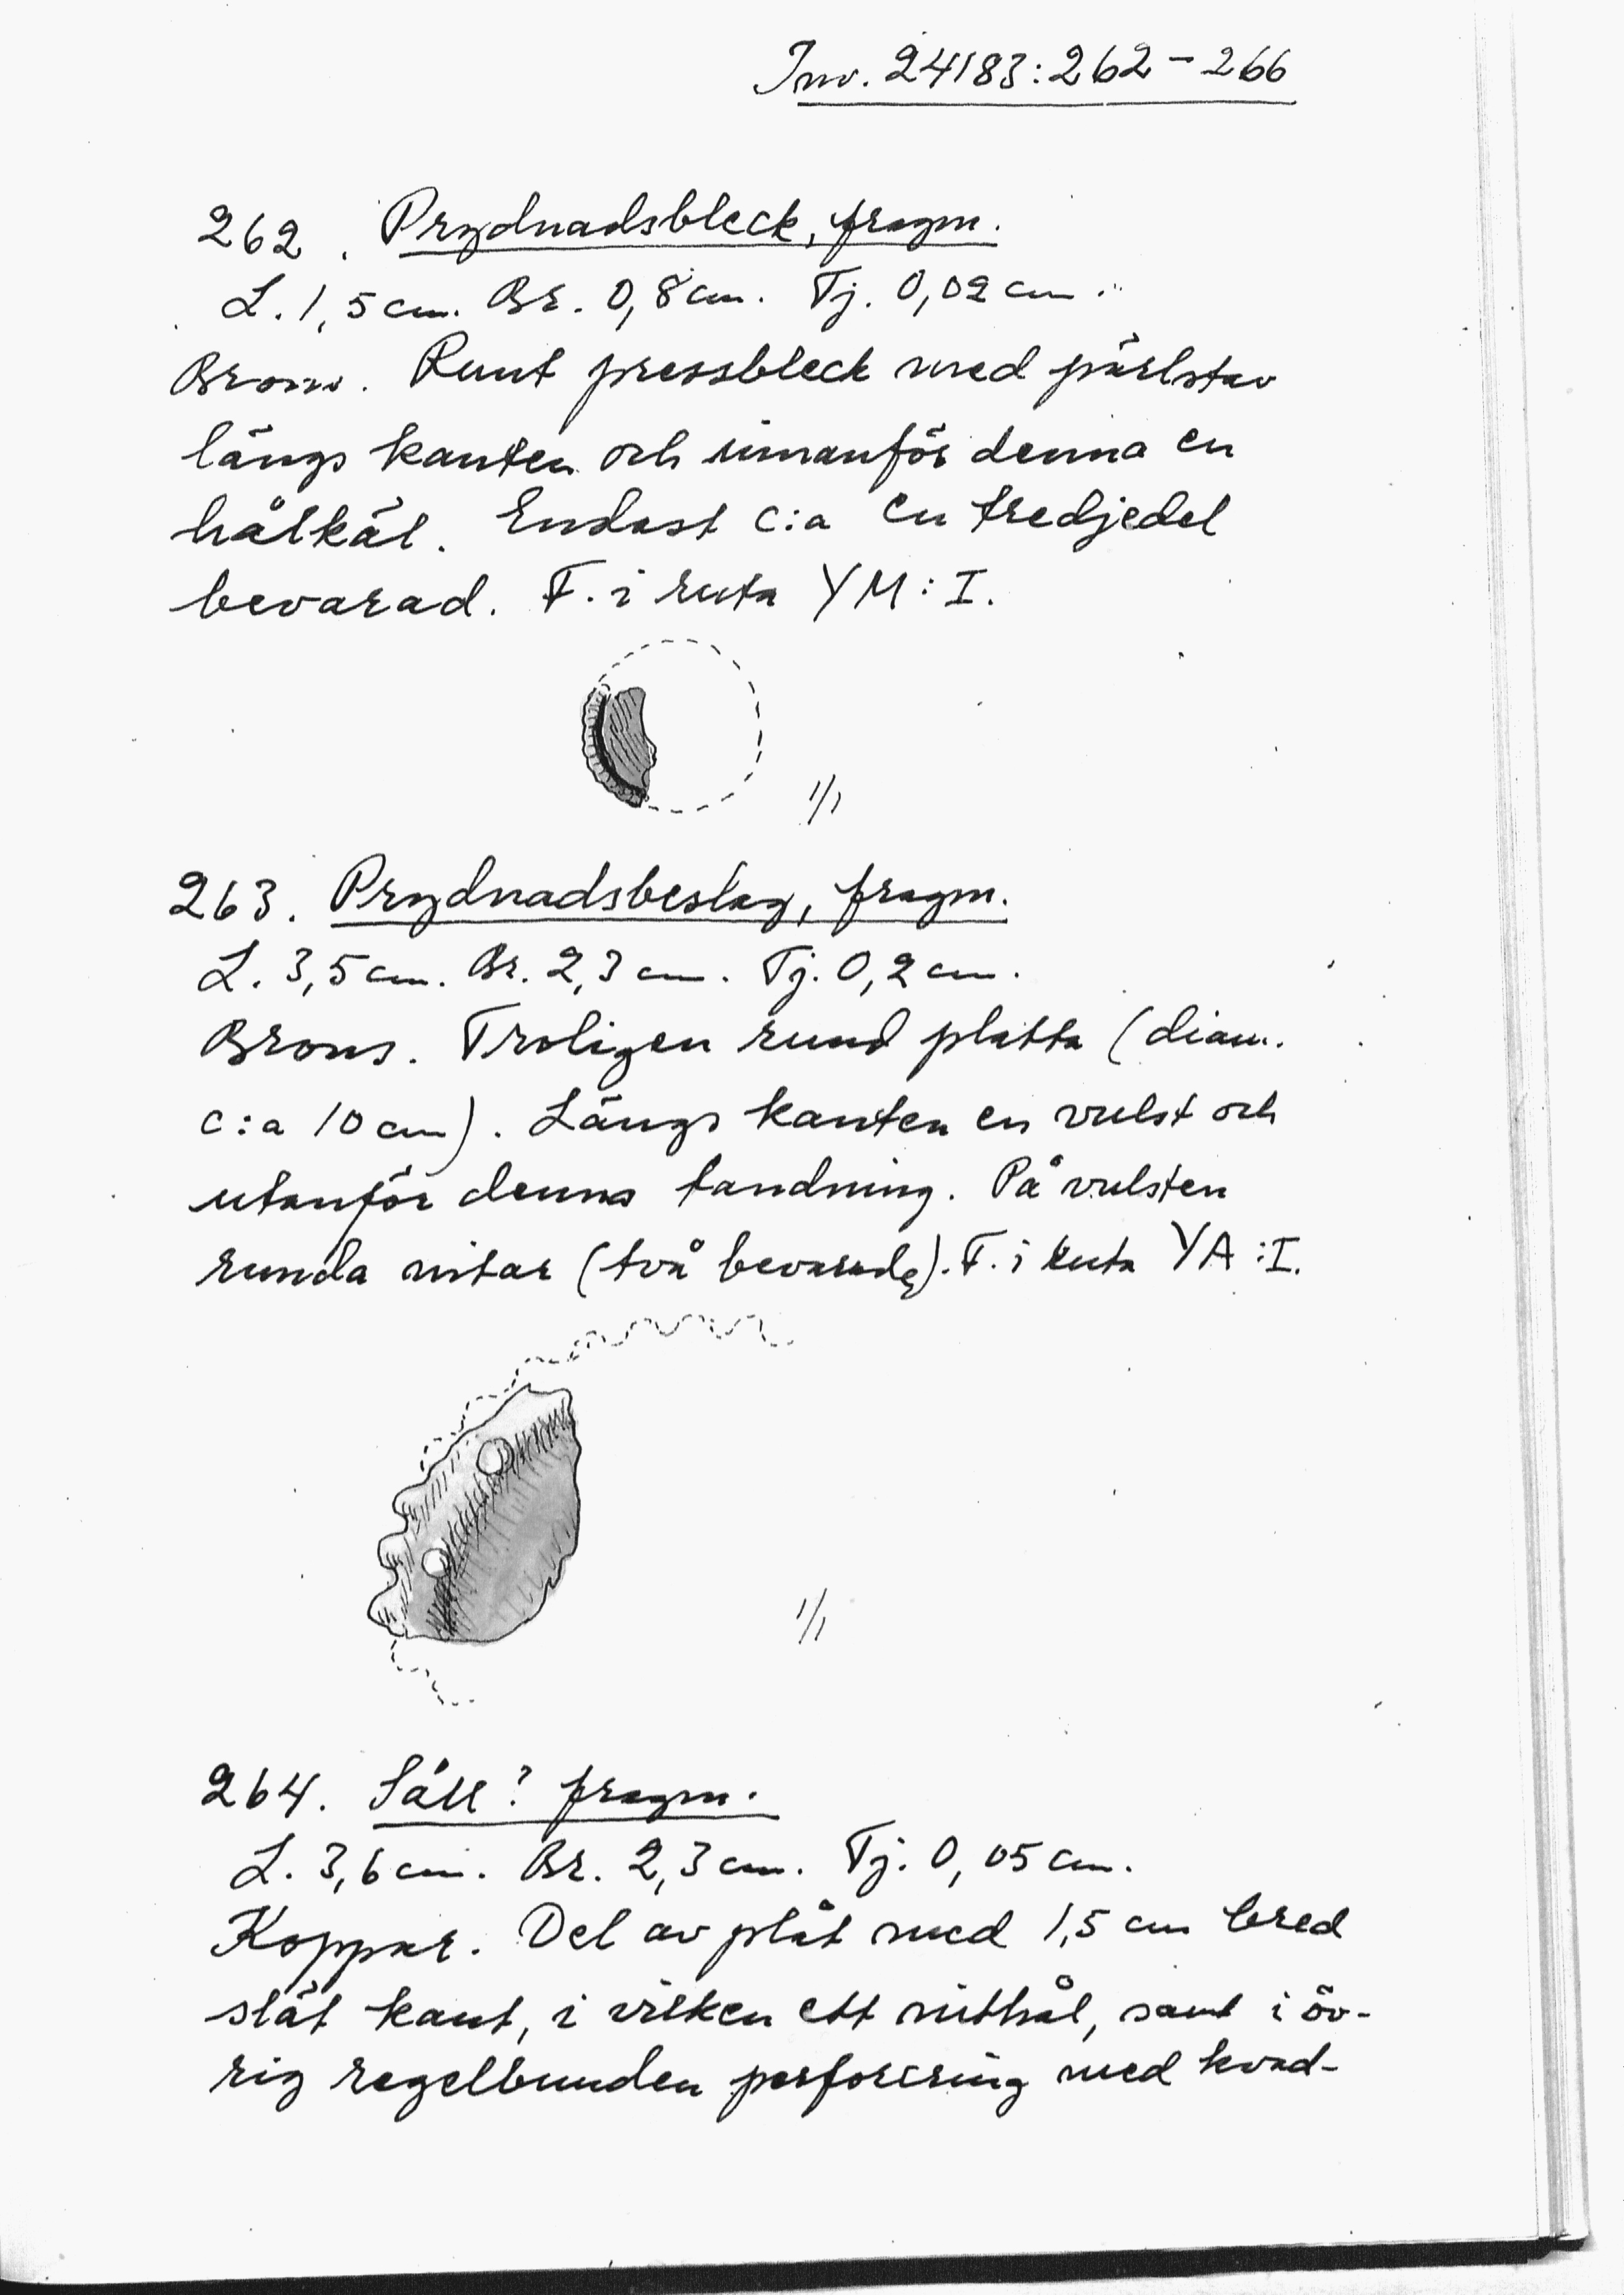 Inv. 24183:262-266
262. Prydnadsbleck, fragm.
L. 1,5 cm. Br. 0,8 cm. Tj. 0,02 cm.
Brons. Runt pressbleck med pärlstav
längs kanten och innanför denna en
hålkäl. Endast c:a en tredjedel
bevarad. F. i ruta YM:I.
1/1
263. Prydnadsbeslag, fragm.
L. 3,5 cm. Br. 2,3 cm. Tj. 0,2 cm.
Brons. Troligen rund platta (diam.
c:a 10 cm). Längs kanten en vulst och
utanför denna tandning. På vulsten
runda nitar (två bevarade). F. i ruta YA:I.
1/1
264. Såll? fragm.
L. 3,6 cm. Br. 2,3 cm. Tj. 0,05 cm.
Koppar. Del av plåt med 1,5 cm bred
slät kant, i vilken ett nithål, samt i öv-
rig regelbunden perforering med kvad-